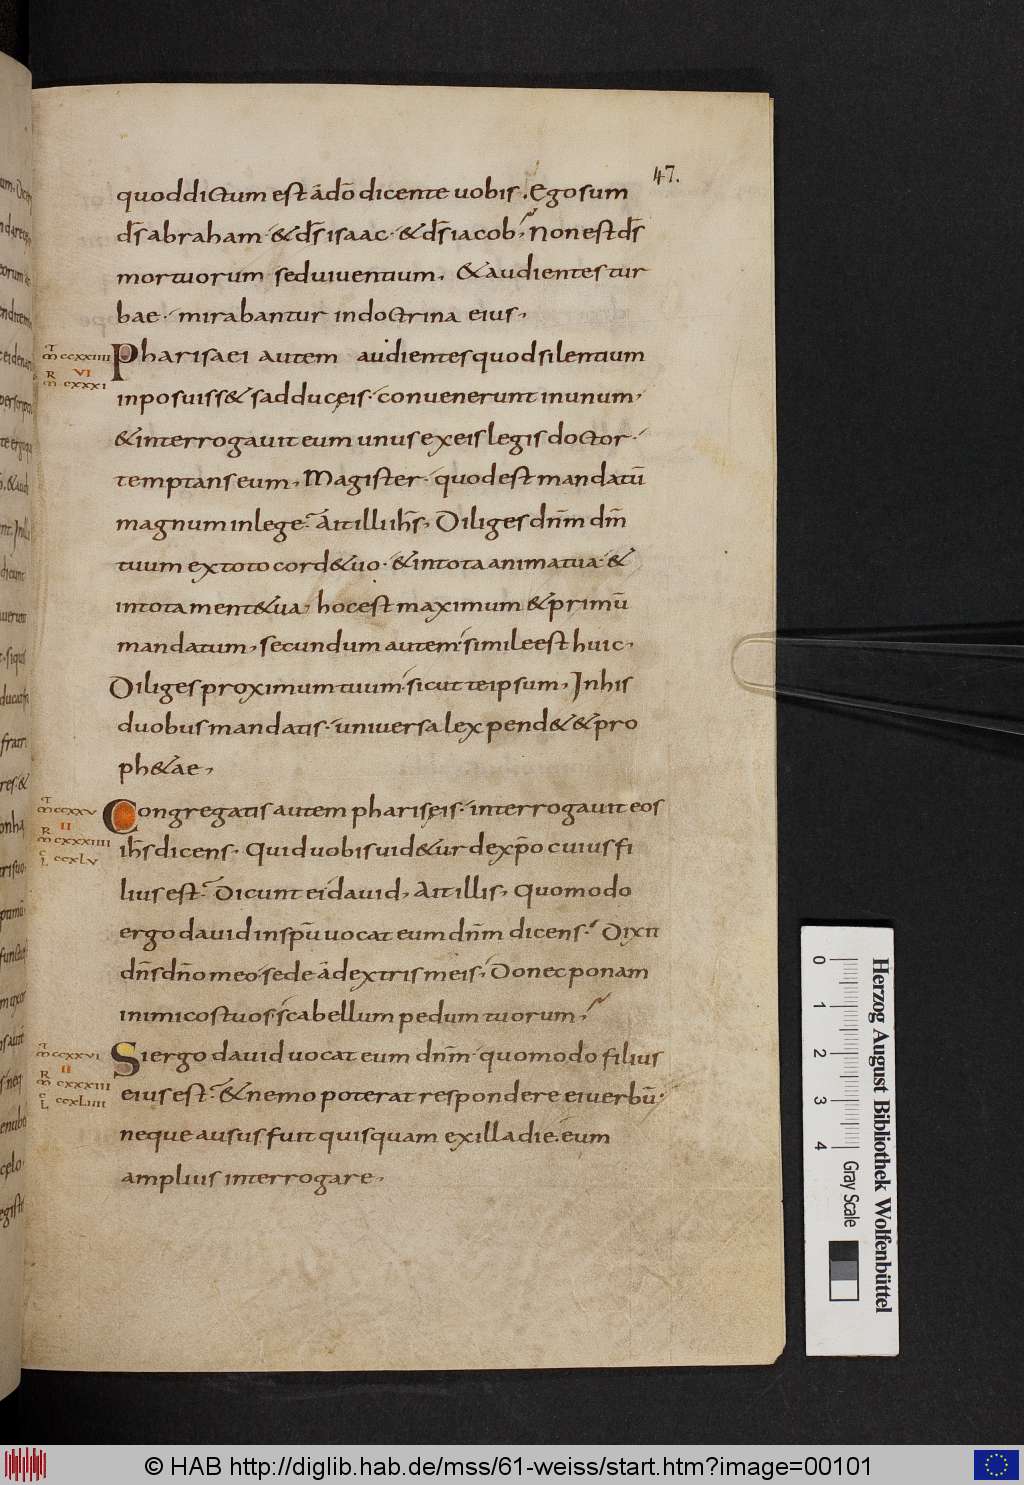 47.
quoddictum est ádõ dicente uobis. Egosum
d̅s abraham· & d̅s isaac· & d̅s iacob; Non est d̅s
mortuorum sed uiuentium. & audientes tur
bae· mirabantur indoctrina eius,
T
m̅ ccxxiiii
VI
R
m̅ cxxxi
Pharisaei autem audientes quod silentium
inposuiss& sadducęis· conuenerunt inunum,
& interrogauit eum unus exeis legis doctor·
temptans eum, Magister· quod est mandatū
magnum inlege? Ait illi ih̅s, Diliges dn̅m dm̅
tuum extoto cord&uo· & intota anima tua· &
intota ment&ua, hoc est maximum & primū
mandatum, secundum autem simile est huic,
Diliges proximum tuum· sicut teipsum, In his
duobus mandatis· uniuersa lex pend& & pro
ph&ae,
T
m̅ ccxxv
II
R
m̅ cxxxiiii
C
L ccxLv
Congregatis autem pharisęis· interrogauit eos
ih̅s dicens· Quid uobis uid&ur dexp̅o cuius fi
lius est? Dicunt ei dauid, Ait illis, Quomodo
ergo dauid insp̅u uocat eum dn̅m dicens· Dixit
dn̅s dn̅o meo· sede ádextris meis, Donec ponam
inimicos tuos· scabellum pedum tuorum;
T
m̅ ccxxvi
II
R
m̅ cxxxiii
C
L ccxLiiii
Si ergo dauid uocat eum dn̅m· quomodo filius
eius est? & nemo poterat respondere ei uerbū·
neque ausus fuit quisquam exilla die· eum
amplius interrogare,
0 1 2 3 4
Gray Scale
Herzog August Bibliothek Wolfenbüttel
© HAB http://diglib.hab.de/mss/61-weiss/start.htm?image=00101